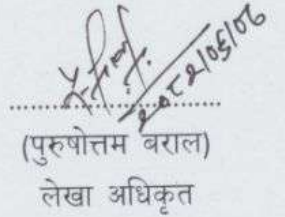 २०८२/०६/०८
(पुरुषोत्तम बराल)
लेखा अधिकृत